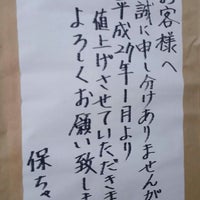 お客様へ
誠に申し分けありませんが
平成27年1月より
値上げさせていただきま
よろしくお願い致しま
保ちゃ